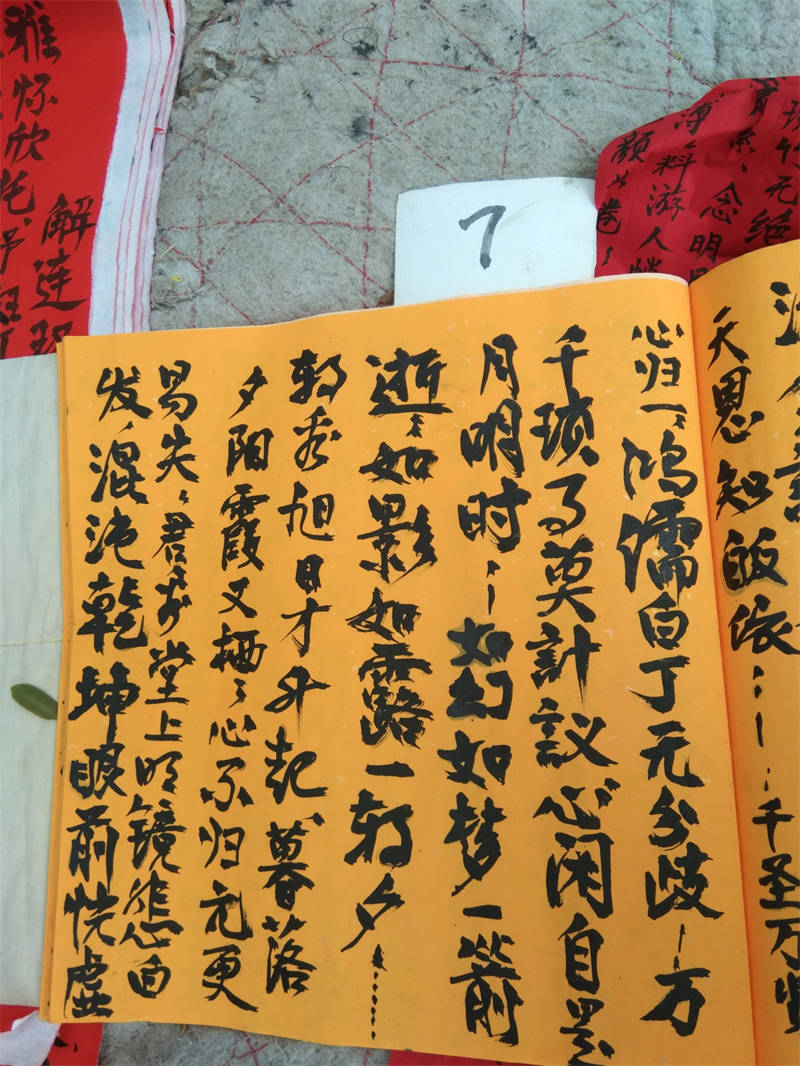 天恩知皈依……千圣万贤
心归一、鸿儒白丁无分歧、万
千琐事莫计议心闲自
月明时……如幻如梦一箭
逝、如影如露一朝夕……
朝看旭日才升起暮落
夕阳霞又栖、心不归元更
易失、君堂上明镜悲白
发、混沌乾坤眼前恍虚
7
竹无绝
念明
料游人
颜
解连
雅怀欣